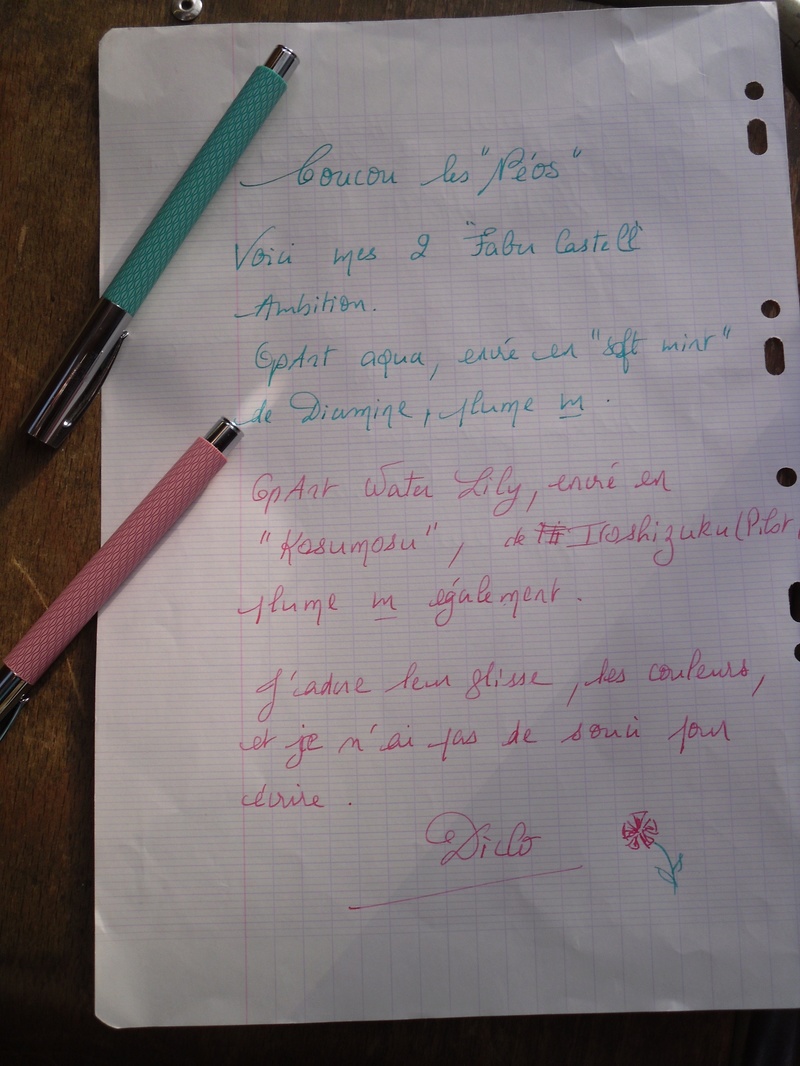 Coucou les "Péos"
Voici mes 2 "Faber Castell"
Ambition.
OpArt aqua, encré en "soft mint"
de Diamine, plume m.
OpArt Water Lily, encré en
"Kosumosu", de Iroshizuku (Pilot,
plume m également.
J'adore leur glisse, les couleurs,
et je n'ai pas de souci pour
écrire.
Diclo